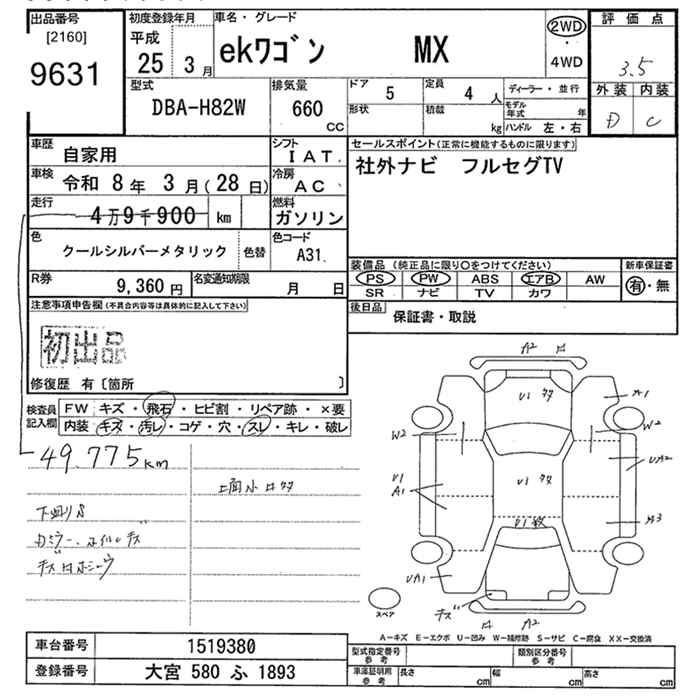 出品番号
[2160]
9631
初度登録年月
平成
25 3月
車名・グレード
ekワゴン MX
2WD
・
4WD
評価点
3.5
外装 内装
D C
型式
DBA-H82W
排気量
660
CC
ドア
5
定員
4 人
形状
積載
kg
ディーラー・並行
モデル年式 年
ハンドル 左・右
車歴
自家用
シフト
IAT.
車検
令和 8年 3月(28日)
冷房
AC
走行
4万9千900 km
燃料
ガソリン
色
クールシルバーメタリック
色替
色コード
A31
R券
9,360円
名変通知期限
月 日
セールスポイント(正常に機能するものに限ります)
社外ナビ フルセグTV
装備品 (純正品に限り○をつけてください)
新車保証書
PS PW ABS エアB AW
SR ナビ TV カワ
有・無
後日品
保証書・取説
注意事項申告欄(不具合内容等は具体的に記入して下さい)
初出品
修復歴 有〔箇所 〕
検査員
記入欄
FW キズ・飛石・ヒビ割・リペア跡・×要
内装・キズ・汚レ・コゲ・穴・スレ・キレ・破レ
49.775km
下回りS
A2
U1
A1
W2
W2
UA2
U1
U1
A1
A3
U1
UA1
キズ
A2
スペア
A−キズ E−エクボ U−凹み W−補修跡 S−サビ C−腐食 XX−交換済
車台番号
1519380
登録番号
大宮 580 ふ 1893
型式指定番号
参考
類別区分番号
参考
車庫証明用
参考
長さ cm
幅 cm
高さ cm